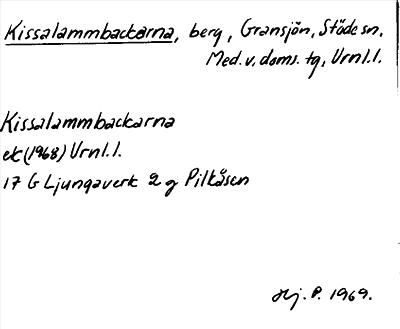 Kissalammbackarna, berg, Gransjön, Stöde sn,
Med. v. doms. tg, Urnl.l.
Kissalammbackarna
ek (1968) Urnl.l.
17 G Ljungaverk 2 g Pilkåsen
Hj. P. 1969.